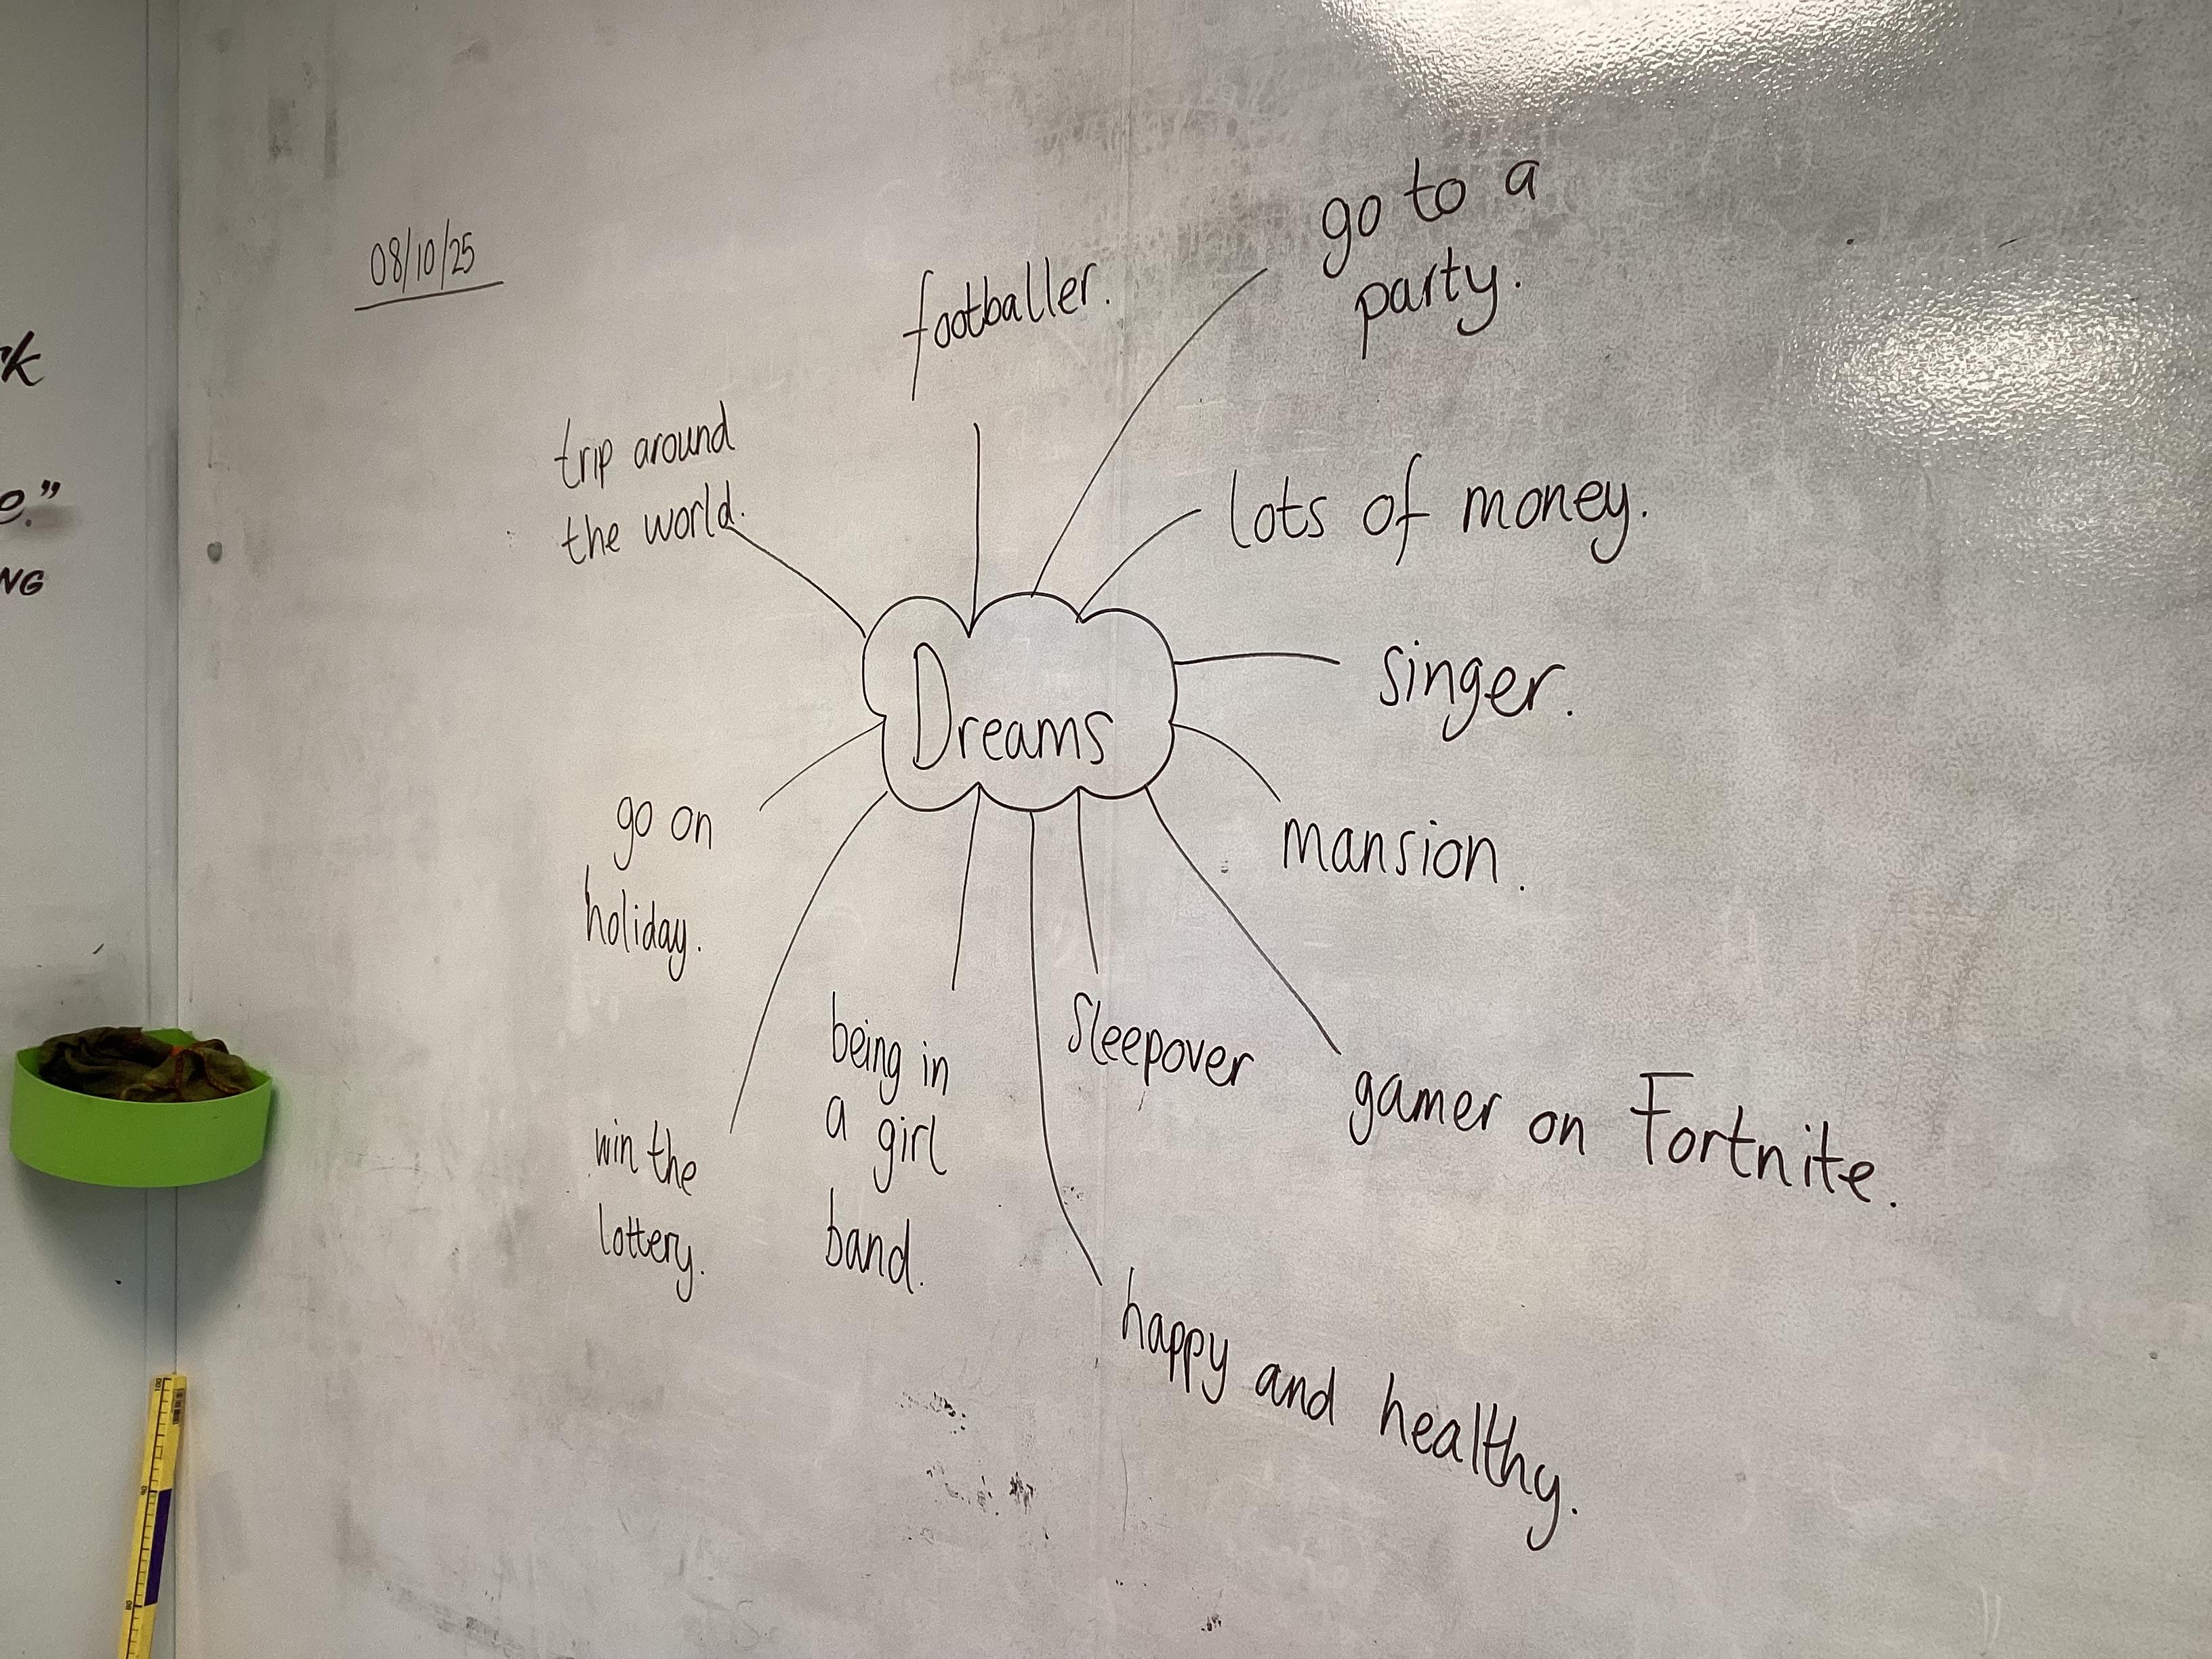 08/10/25
rk
e."
NG
footballer.
go to a
party.
trip around
the world.
lots of money.
Dreams
singer.
mansion.
go on
holiday.
win the
lottery.
being in
a girl
band.
Sleepover
gamer on Fortnite.
happy and healthy.
100
90
80